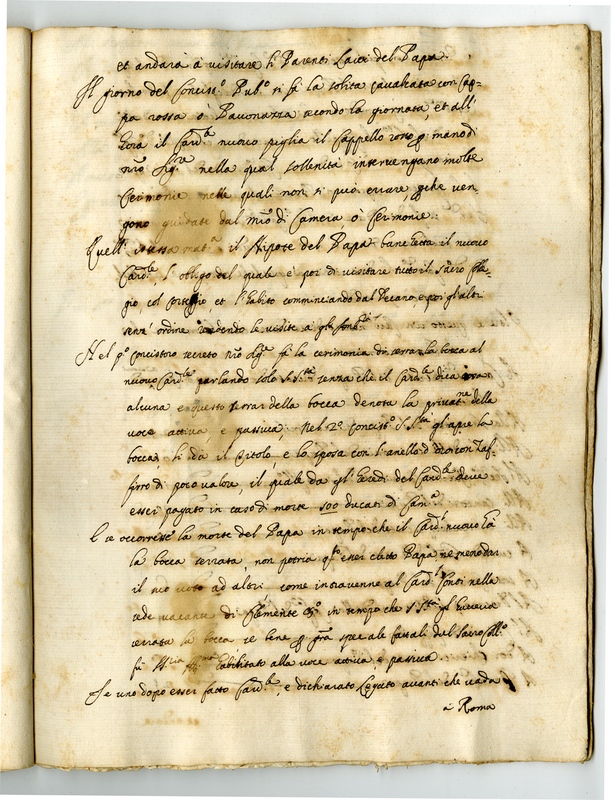 et andarà à visitare li Parenti Laici del Papa.
Il giorno del Concist.º Pub.º si fà la solita cavalcata con Cap-
pa rossa ò Pavonazza secondo la giornata, et all'
hora il Card.le nuovo piglia il Cappello rosso p mano di
nrõ Sig.re nella qual sollenità intervengano molte
Cerimonie nelle quali non si può errare, pche ven-
gono guidate dal mrõ di Camera ò Cerimonie.
Quell' istessa mat.a il Nipote del Papa banchetta il nuovo
Card.le, l'obligo del quale è poi di visitare tutto il Sacro Col-
gio, col corteggio et l'habito comminciando dal Decano, e poi gl'altri
senz' ordine rendendo le visite à gli
Nel p.º concistoro secreto nrõ Sig.re fà la cerimonia di serrar la bocca al
nuovo Card.le parlando solo S. S.tà senza che il Card.le dica cosa
alcuna e questo serrar della bocca denota la privat.ne della
voce attiva, e passiva; Nel 2.º concist.º S. S.tà gl'apre la
bocca, li dà il Titolo, e lo sposa con l'anello d'oro con Zaf-
firro di poco valore, il quale da gl'heredi del Card.le deve
esser pagato in caso di morte 500 ducati di Cam.a
E se occorresse la morte del Papa in tempo che il Card.l nuovo hà
la bocca serrata, non potria q.sto esser eletto Papa ne meno dar
il suo voto ad altri come intravenne al Card.l Conti nella
sede vacante di Clemente in tempo che S. S.tà gl'haveva
serrata la bocca se bene p grã speciale fatali dal Sacro Coll.º
fù habilitato alla voce attiva, e passiva.
Se uno dopo esser fatto Card.le, e dichiarato Legato avanti che vada
à Roma